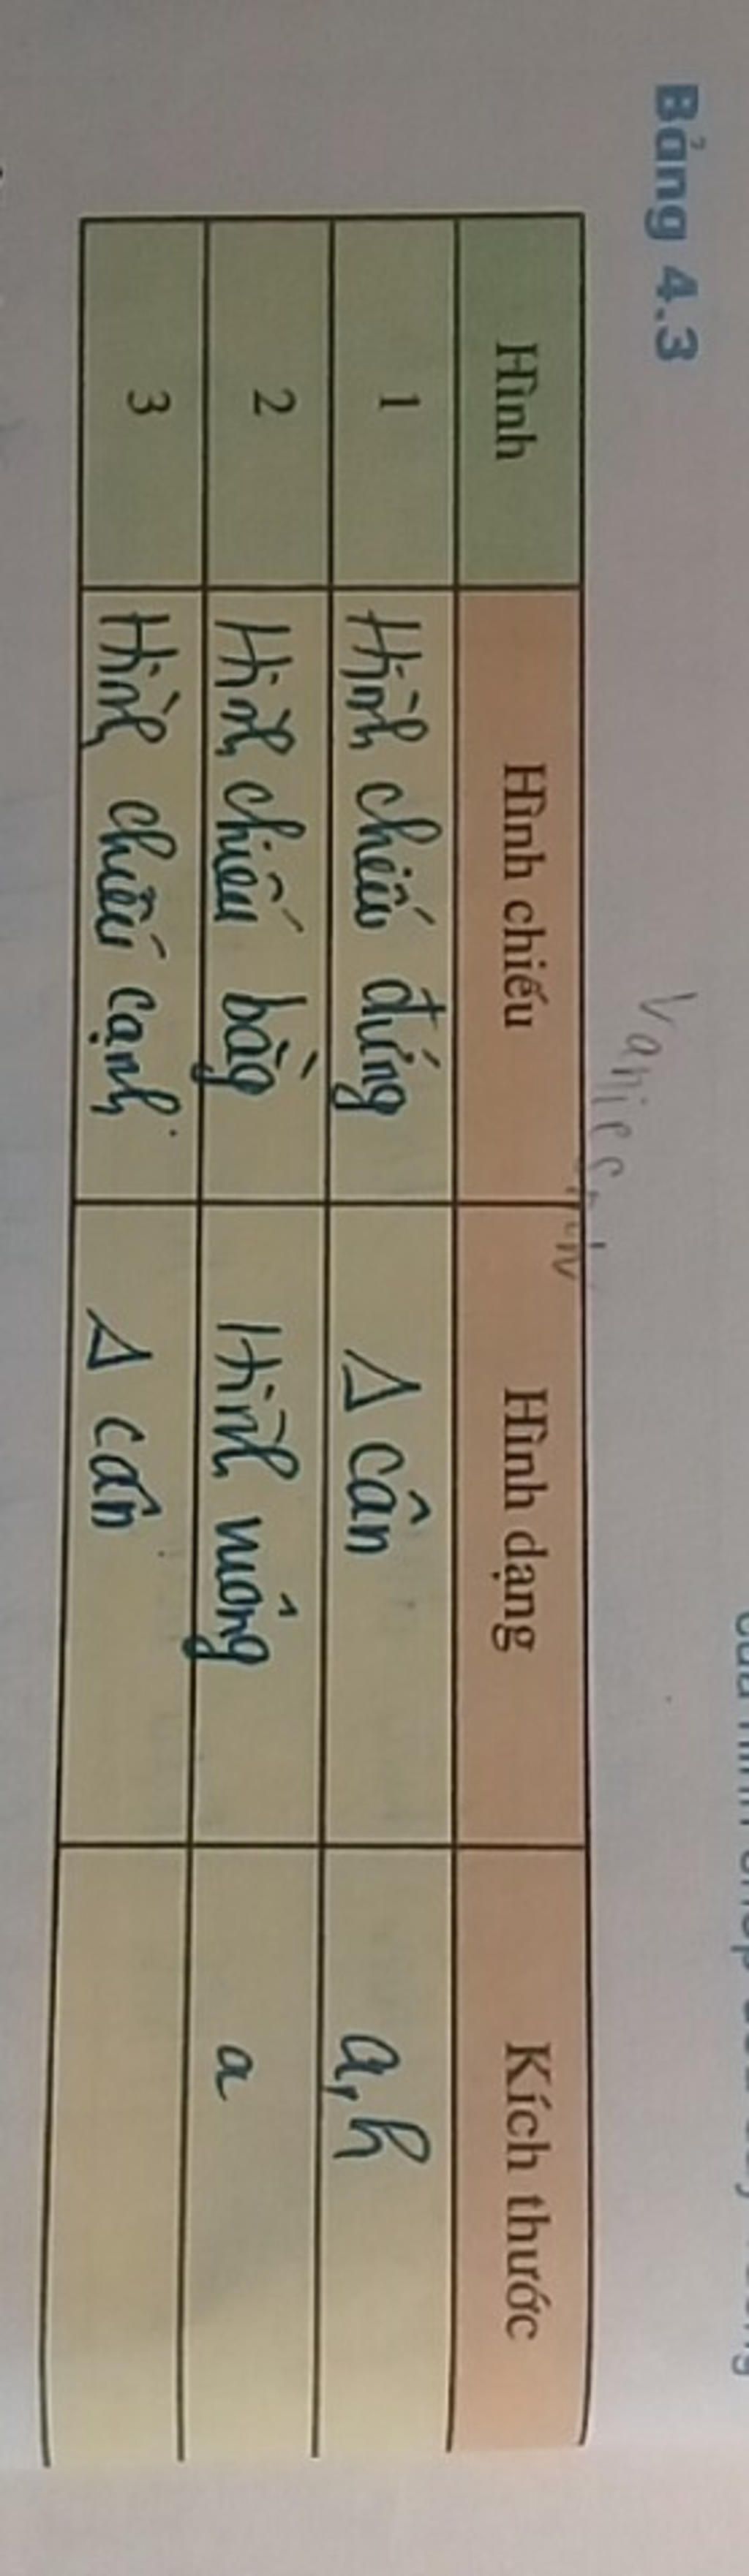 Bảng 4.3
Hình Hình chiếu Hình dạng Kích thước
1 Hình chiếu đứng Δ cân a, h
2 Hình chiếu bằng Hình vuông a
3 Hình chiếu cạnh Δ cân